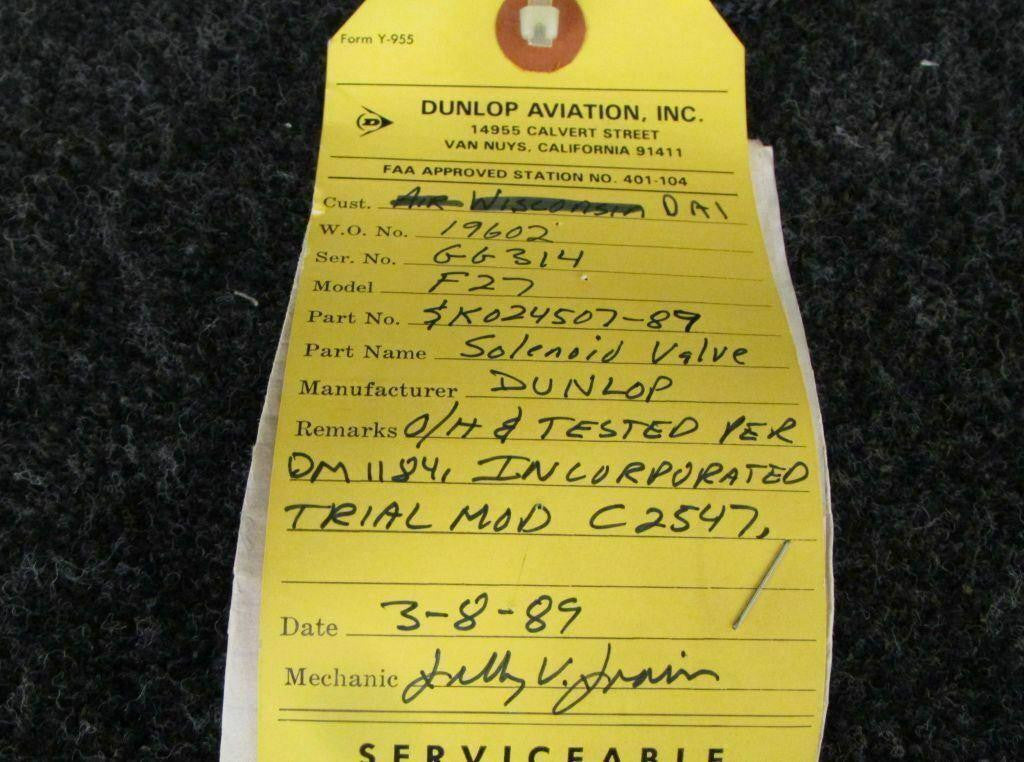 Form Y-955
D
DUNLOP AVIATION, INC.
14955 CALVERT STREET
VAN NUYS, CALIFORNIA 91411
FAA APPROVED STATION NO. 401-104
Cust. AIR WISCONSIN DAI
W.O. No. 19602
Ser. No. GG314
Model F27
Part No. $K024507-89
Part Name Solenoid Valve
Manufacturer DUNLOP
Remarks O/H & TESTED PER
OM 1184, INCORPORATED
TRIAL MOD C2547,
Date 3-8-89
Mechanic
SERVICEABLE